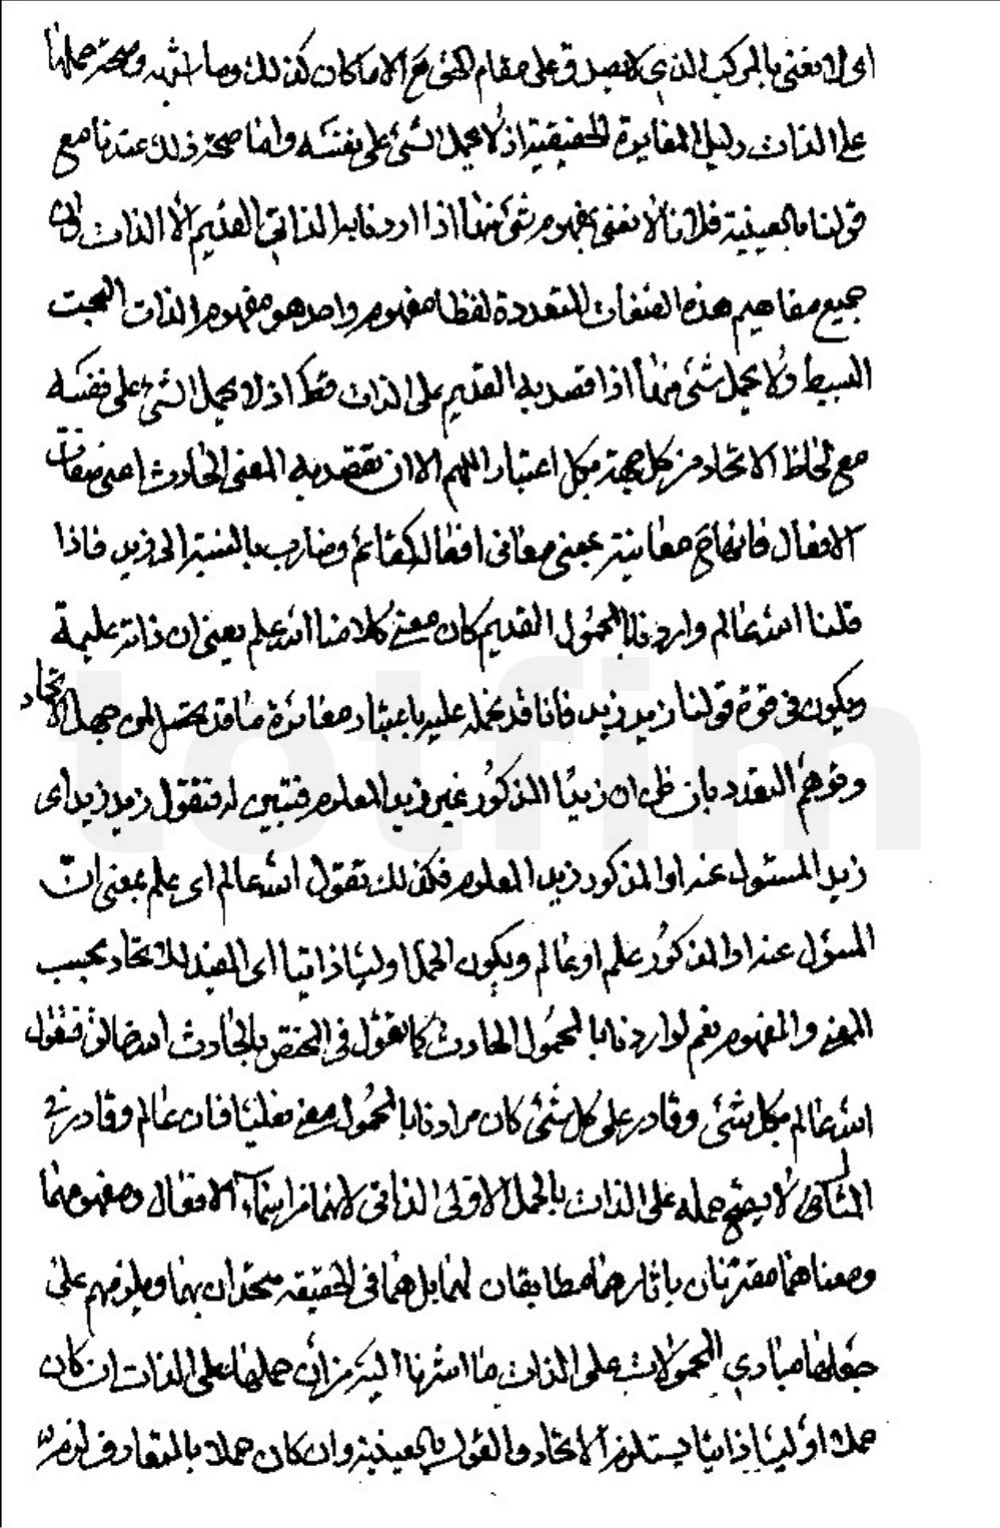 اى لا نعنى بالمركب الذى لا يصدق على مقام الكنى مع الا ما كان كذلك وما اشبهه وصحة حملها
على الذات دليل المغايرة الحقيقية اذ لا يحمل الشئ على نفسه وانما صحة ذلك عندنا مع
قولنا بالعينية فلاننا لا نعنى بمفهوم شئ منها اذا اردنا به الذاتى القديم الا الذات لان
جميع مفاهيم هذه الصفات المتعددة لفظا مفهوم واحد هو مفهوم الذات البحت
البسيط ولا يحمل شئ منها اذا قصد به القديم على الذات قط اذ لا يحمل الشئ على نفسه
مع لحاظ الاتحاد من كل جهة وبكل اعتبار اللهم الا ان تقصد به المعنى الحادث اعنى صفات
الافعال فانها ح معانيه بمعنى معانى افعاله كقائم وضارب بالنسبة الى زيد فاذا
قلنا الله عالم واردنا بالمحمول القديم كان معنى كلامنا الله علم يعنى ان ذاته عليمة
ويكون فى قوة قولنا زيد زيد فانا قد نحمله عليه باعتبار مغايرة ما قد يحصل لمن جهل الاتحاد
وتوهم التعدد بان ظن ان زيدا المذكور غير زيد المعلوم فتبين له فتقول زيد زيد اى
زيد المسئول عنه او المذكور زيد المعلوم فكذلك تقول الله عالم اى علم بمعنى ان
المسؤل عنه او المذكور علم او عالم ويكون الحمل اوليا ذاتيا اى المفيد للاتحاد بحسب
المعنى والمفهوم نعم لو اردنا بالمحمول الحادث كما نقول فى المختص بالحادث الله خالق فنقول
الله عالم بكل شئ وقادر على كل شئ كان مرادنا بالمحمول معنى فعليا فان عالم وقادر فى
المثالين لا يصح حمله على الذات بالحمل الاولى الذاتى لانهما من اسماء الافعال ومفهومهما
ومعناهما مقترنان باثارهما مطابقان لهما بل هما فى الحقيقة متحدان بهما ويلزمهم على
جعلها مبادى المحمولات على الذات ما اشرنا اليه من ان حملها على الذات ان كان
حملا اوليا ذاتيا يستلزم الاتحاد والقول بالعينية وان كان حملا بالمتعارف لزم
totfim